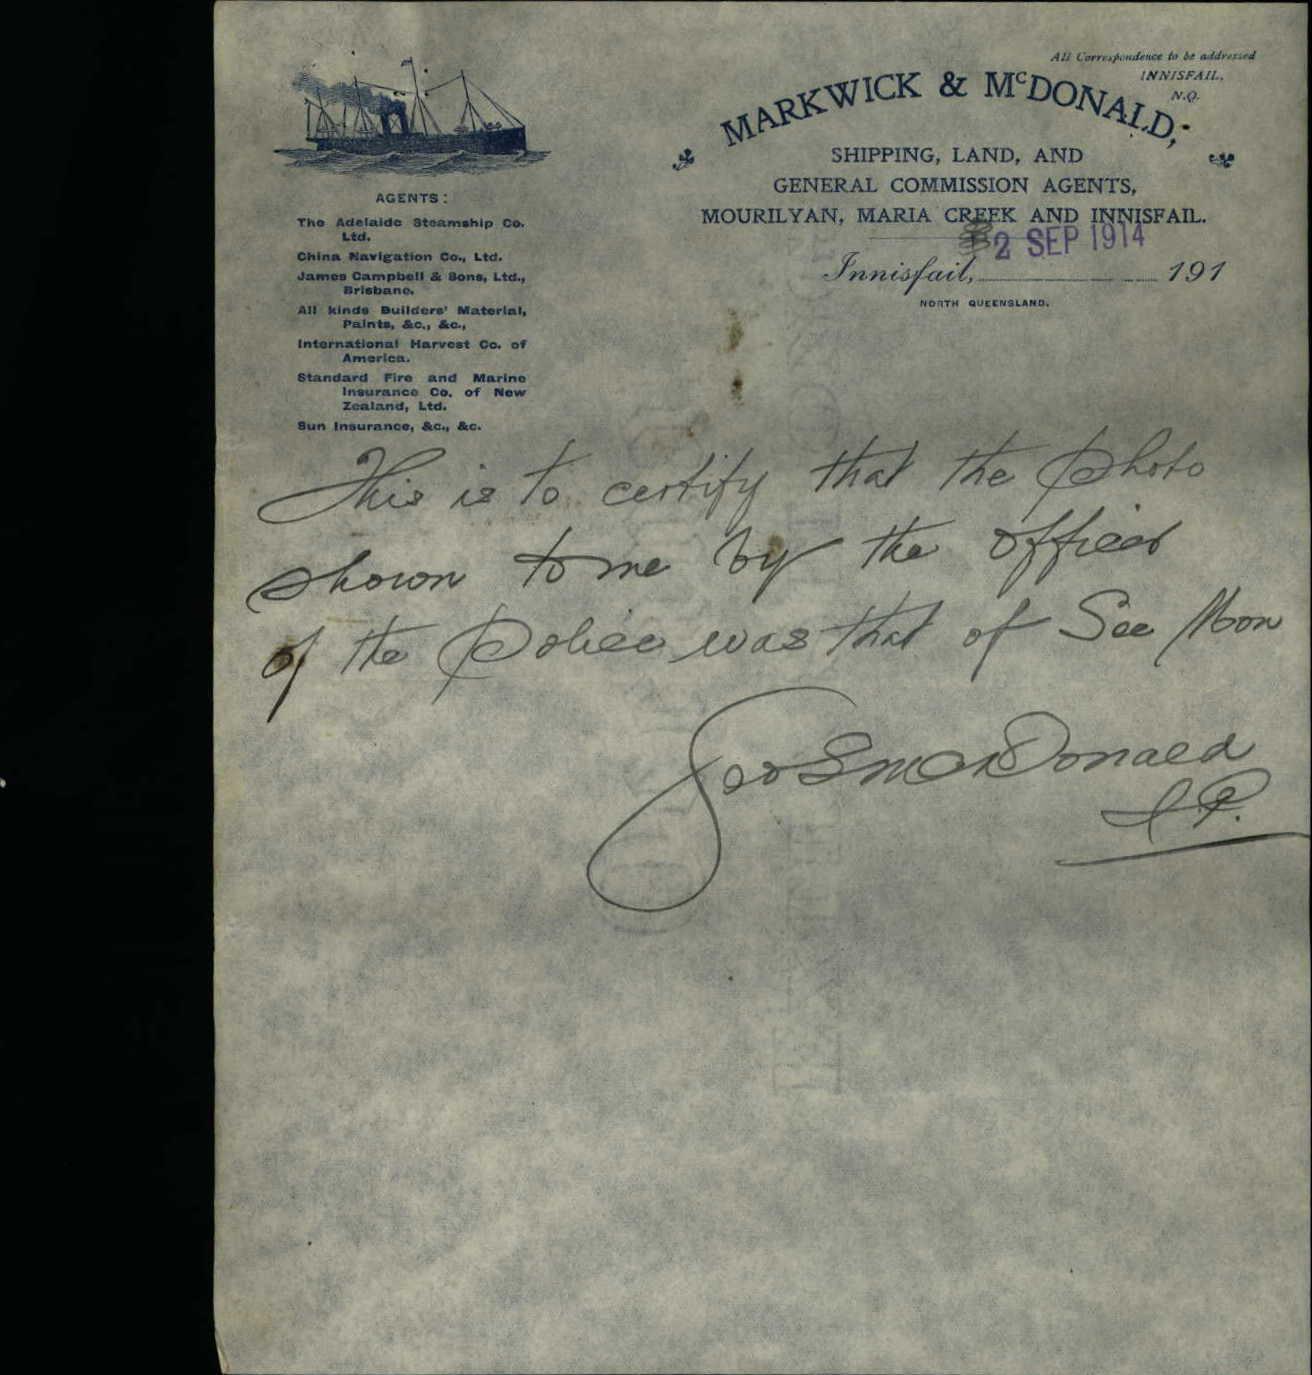 All Correspondence to be addressed
INNISFAIL,
N.Q.
MARKWICK & McDONALD,
SHIPPING, LAND, AND
GENERAL COMMISSION AGENTS,
MOURILYAN, MARIA CREEK AND INNISFAIL.
2 SEP 1914
Innisfail, 191
NORTH QUEENSLAND.
AGENTS:
The Adelaide Steamship Co.
Ltd.
China Navigation Co., Ltd.
James Campbell & Sons, Ltd.,
Brisbane.
All kinds Builders' Material,
Paints, &c., &c.,
International Harvest Co. of
America.
Standard Fire and Marine
Insurance Co. of New
Zealand, Ltd.
Sun Insurance, &c., &c.
This is to certify that the photo
shown to me by the officer
of the Police was that of See Mon
Geo S McDonald
J.P.